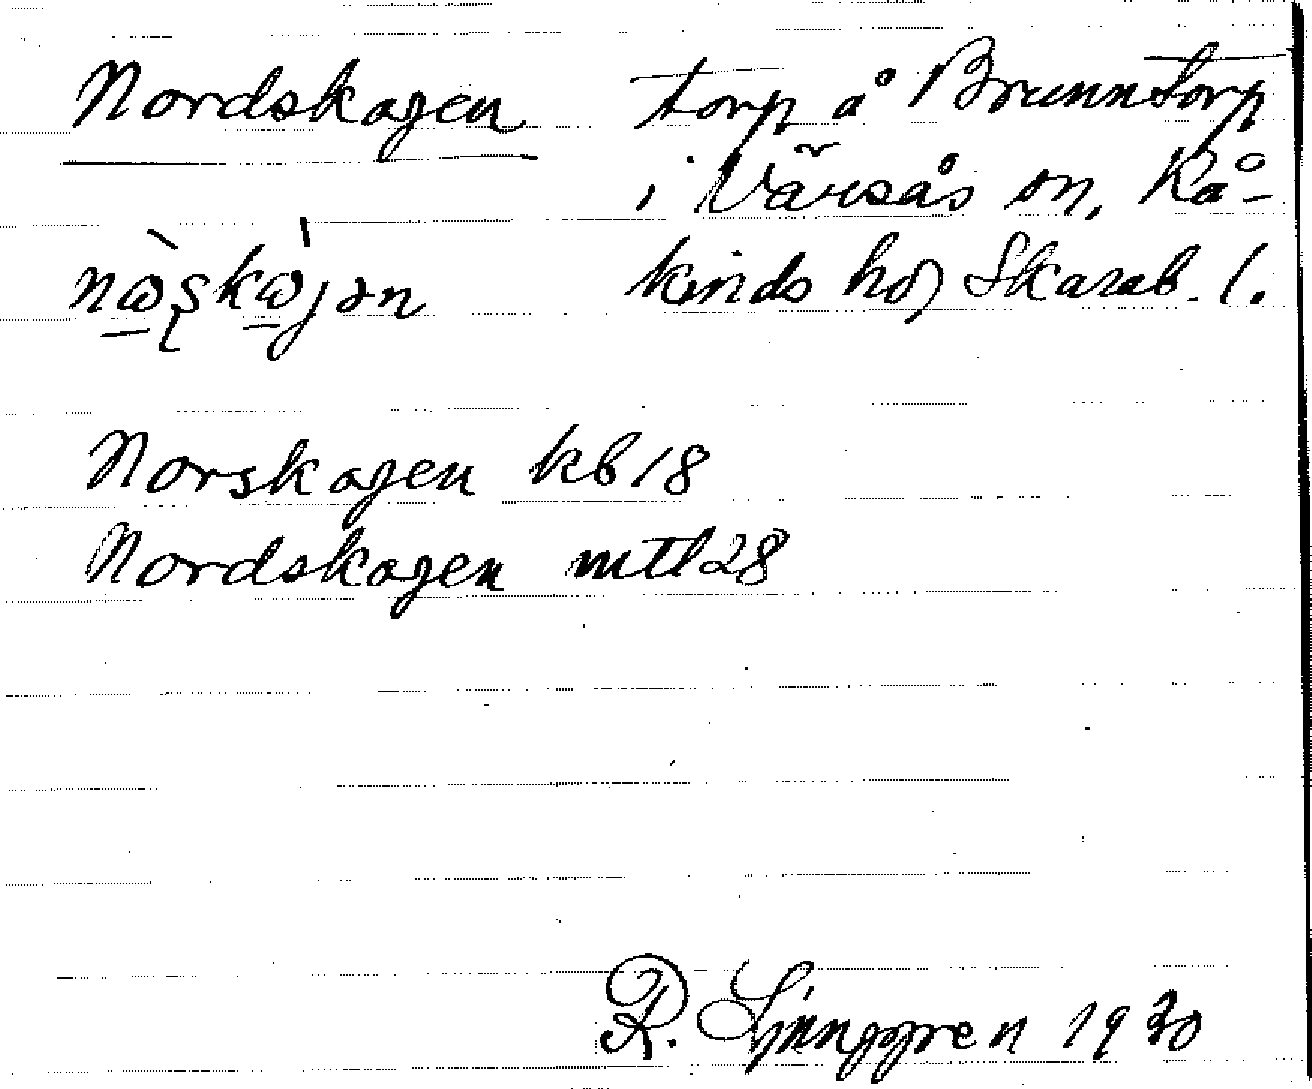 Nordskogen torp å Brunnstorp
i Värsås sn, Kå-
kinds hd, Skarab. l.
Norskogen kb 18
Nordskogen mtl 28
R. Ljunggren 1930